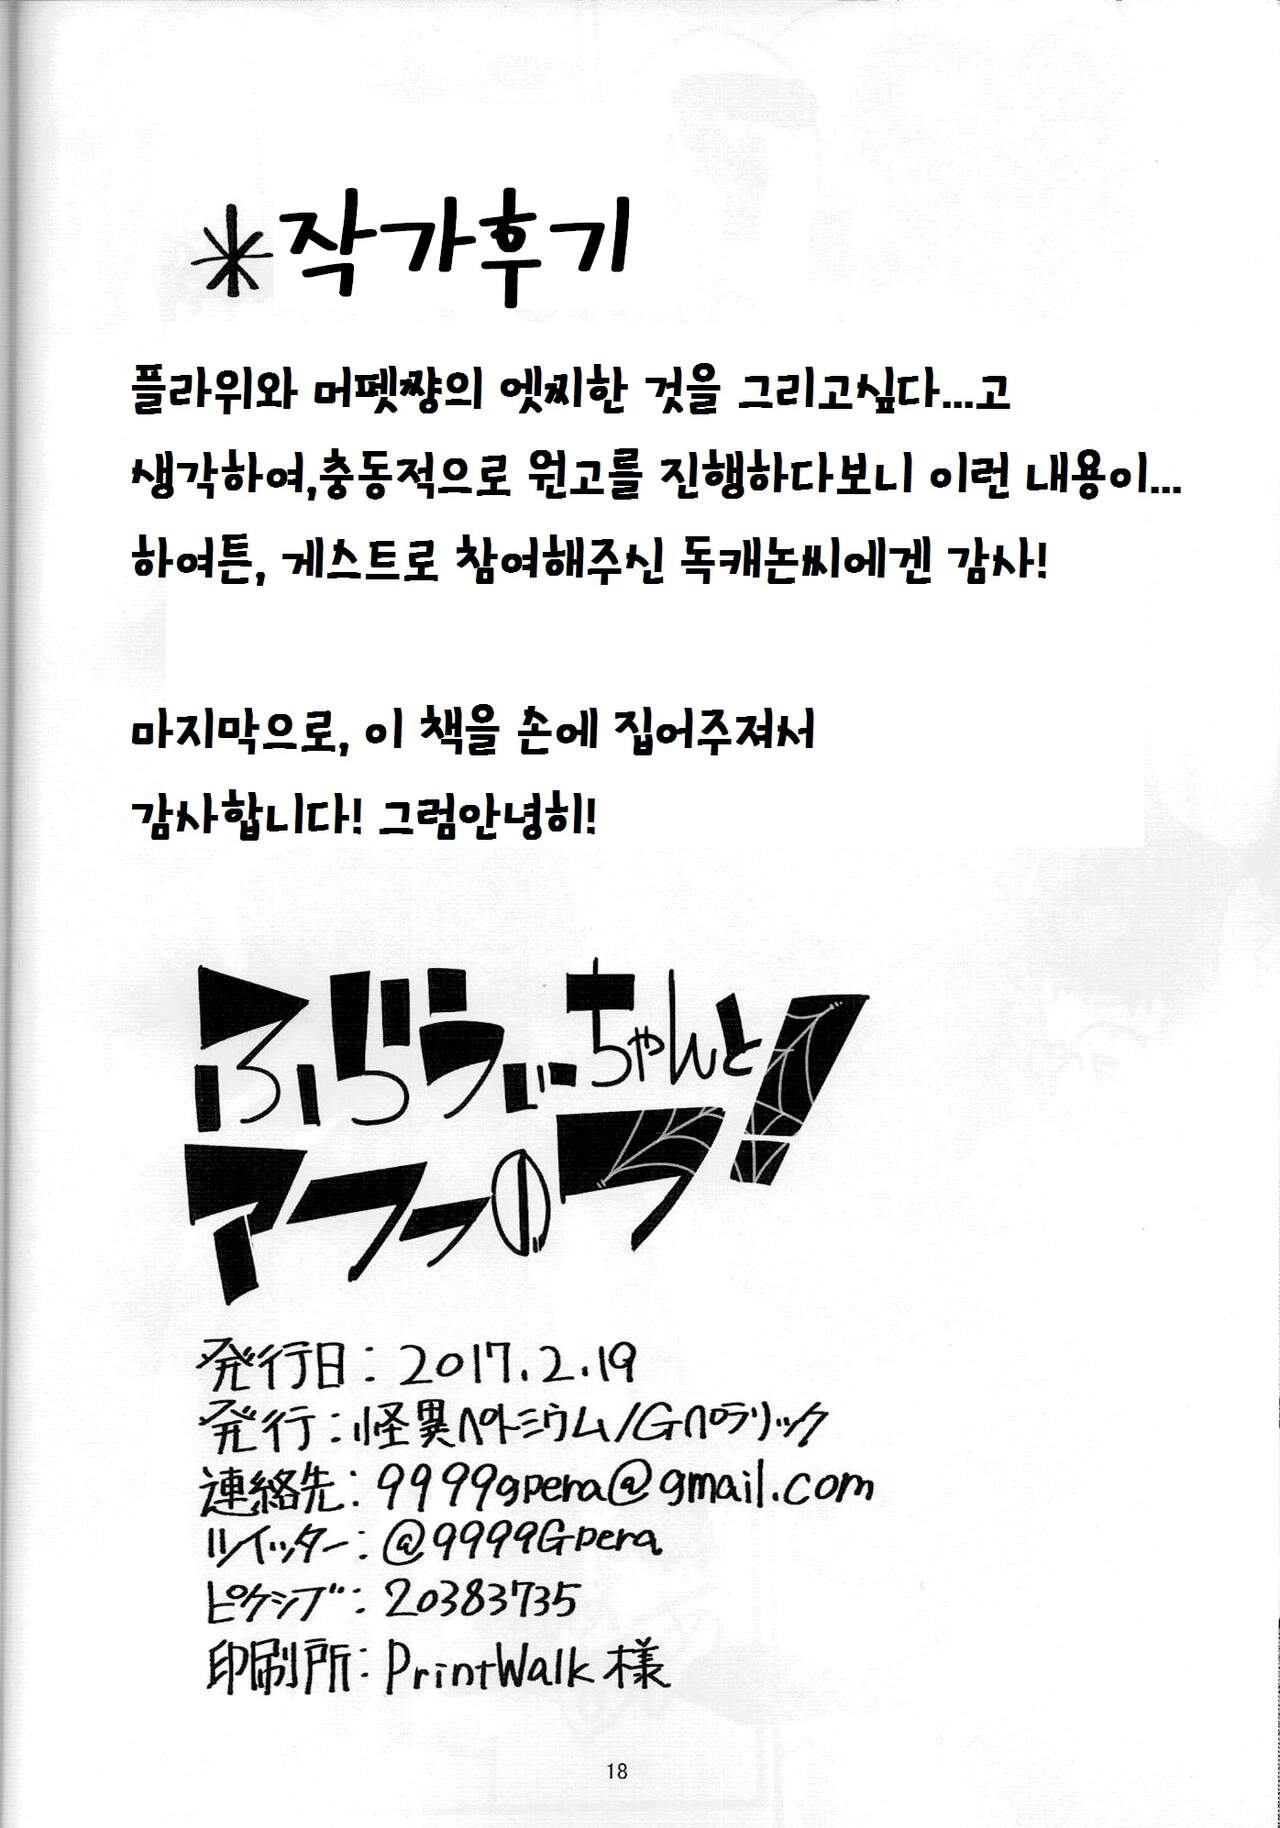 *작가후기
플라위와 머펫쨩의 엣찌한 것을 그리고싶다...고
생각하여,충동적으로 원고를 진행하다보니 이런 내용이...
하여튼, 게스트로 참여해주신 독캐논씨에겐 감사!
마지막으로, 이 책을 손에 집어주져서
감사합니다! 그럼안녕히!
ふらうぃーちゃんと
アフター0フ!
発行日：2017.2.19
発行：怪異ペトミウム/Gペラリック
連絡先：9999gpera@gmail.com
ツイッター：@9999Gpera
ピクシブ：20383735
印刷所：PrintWalk様
18